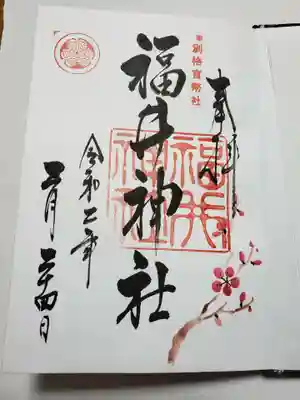 奉拝
別格官幣社
福井神社
福井神社
令和二年
月二十四日